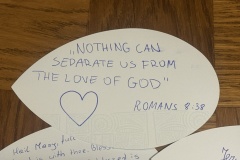 „NOTHING CAN
SEPARATE US FROM
THE LOVE OF GOD"
ROMANS 8:38
Hail Mary, full
with thee.
is